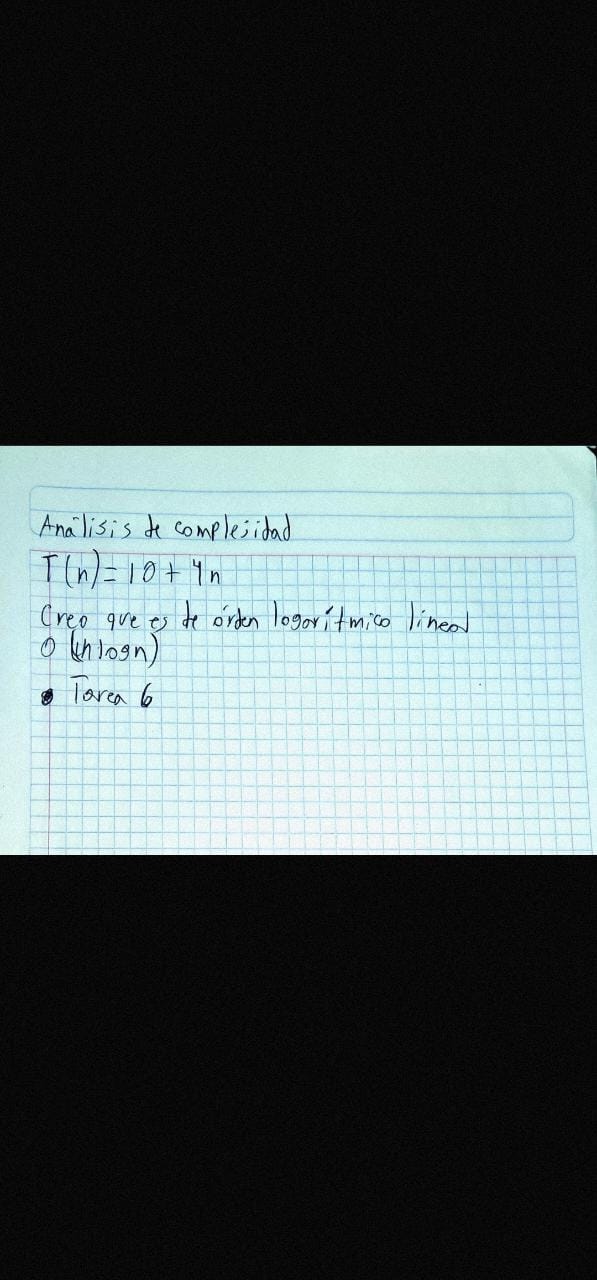 Análisis de complejidad
T(n)=10+4n
Creo que es de órden logarítmico lineal
O (nlogn)
• Tarea 6